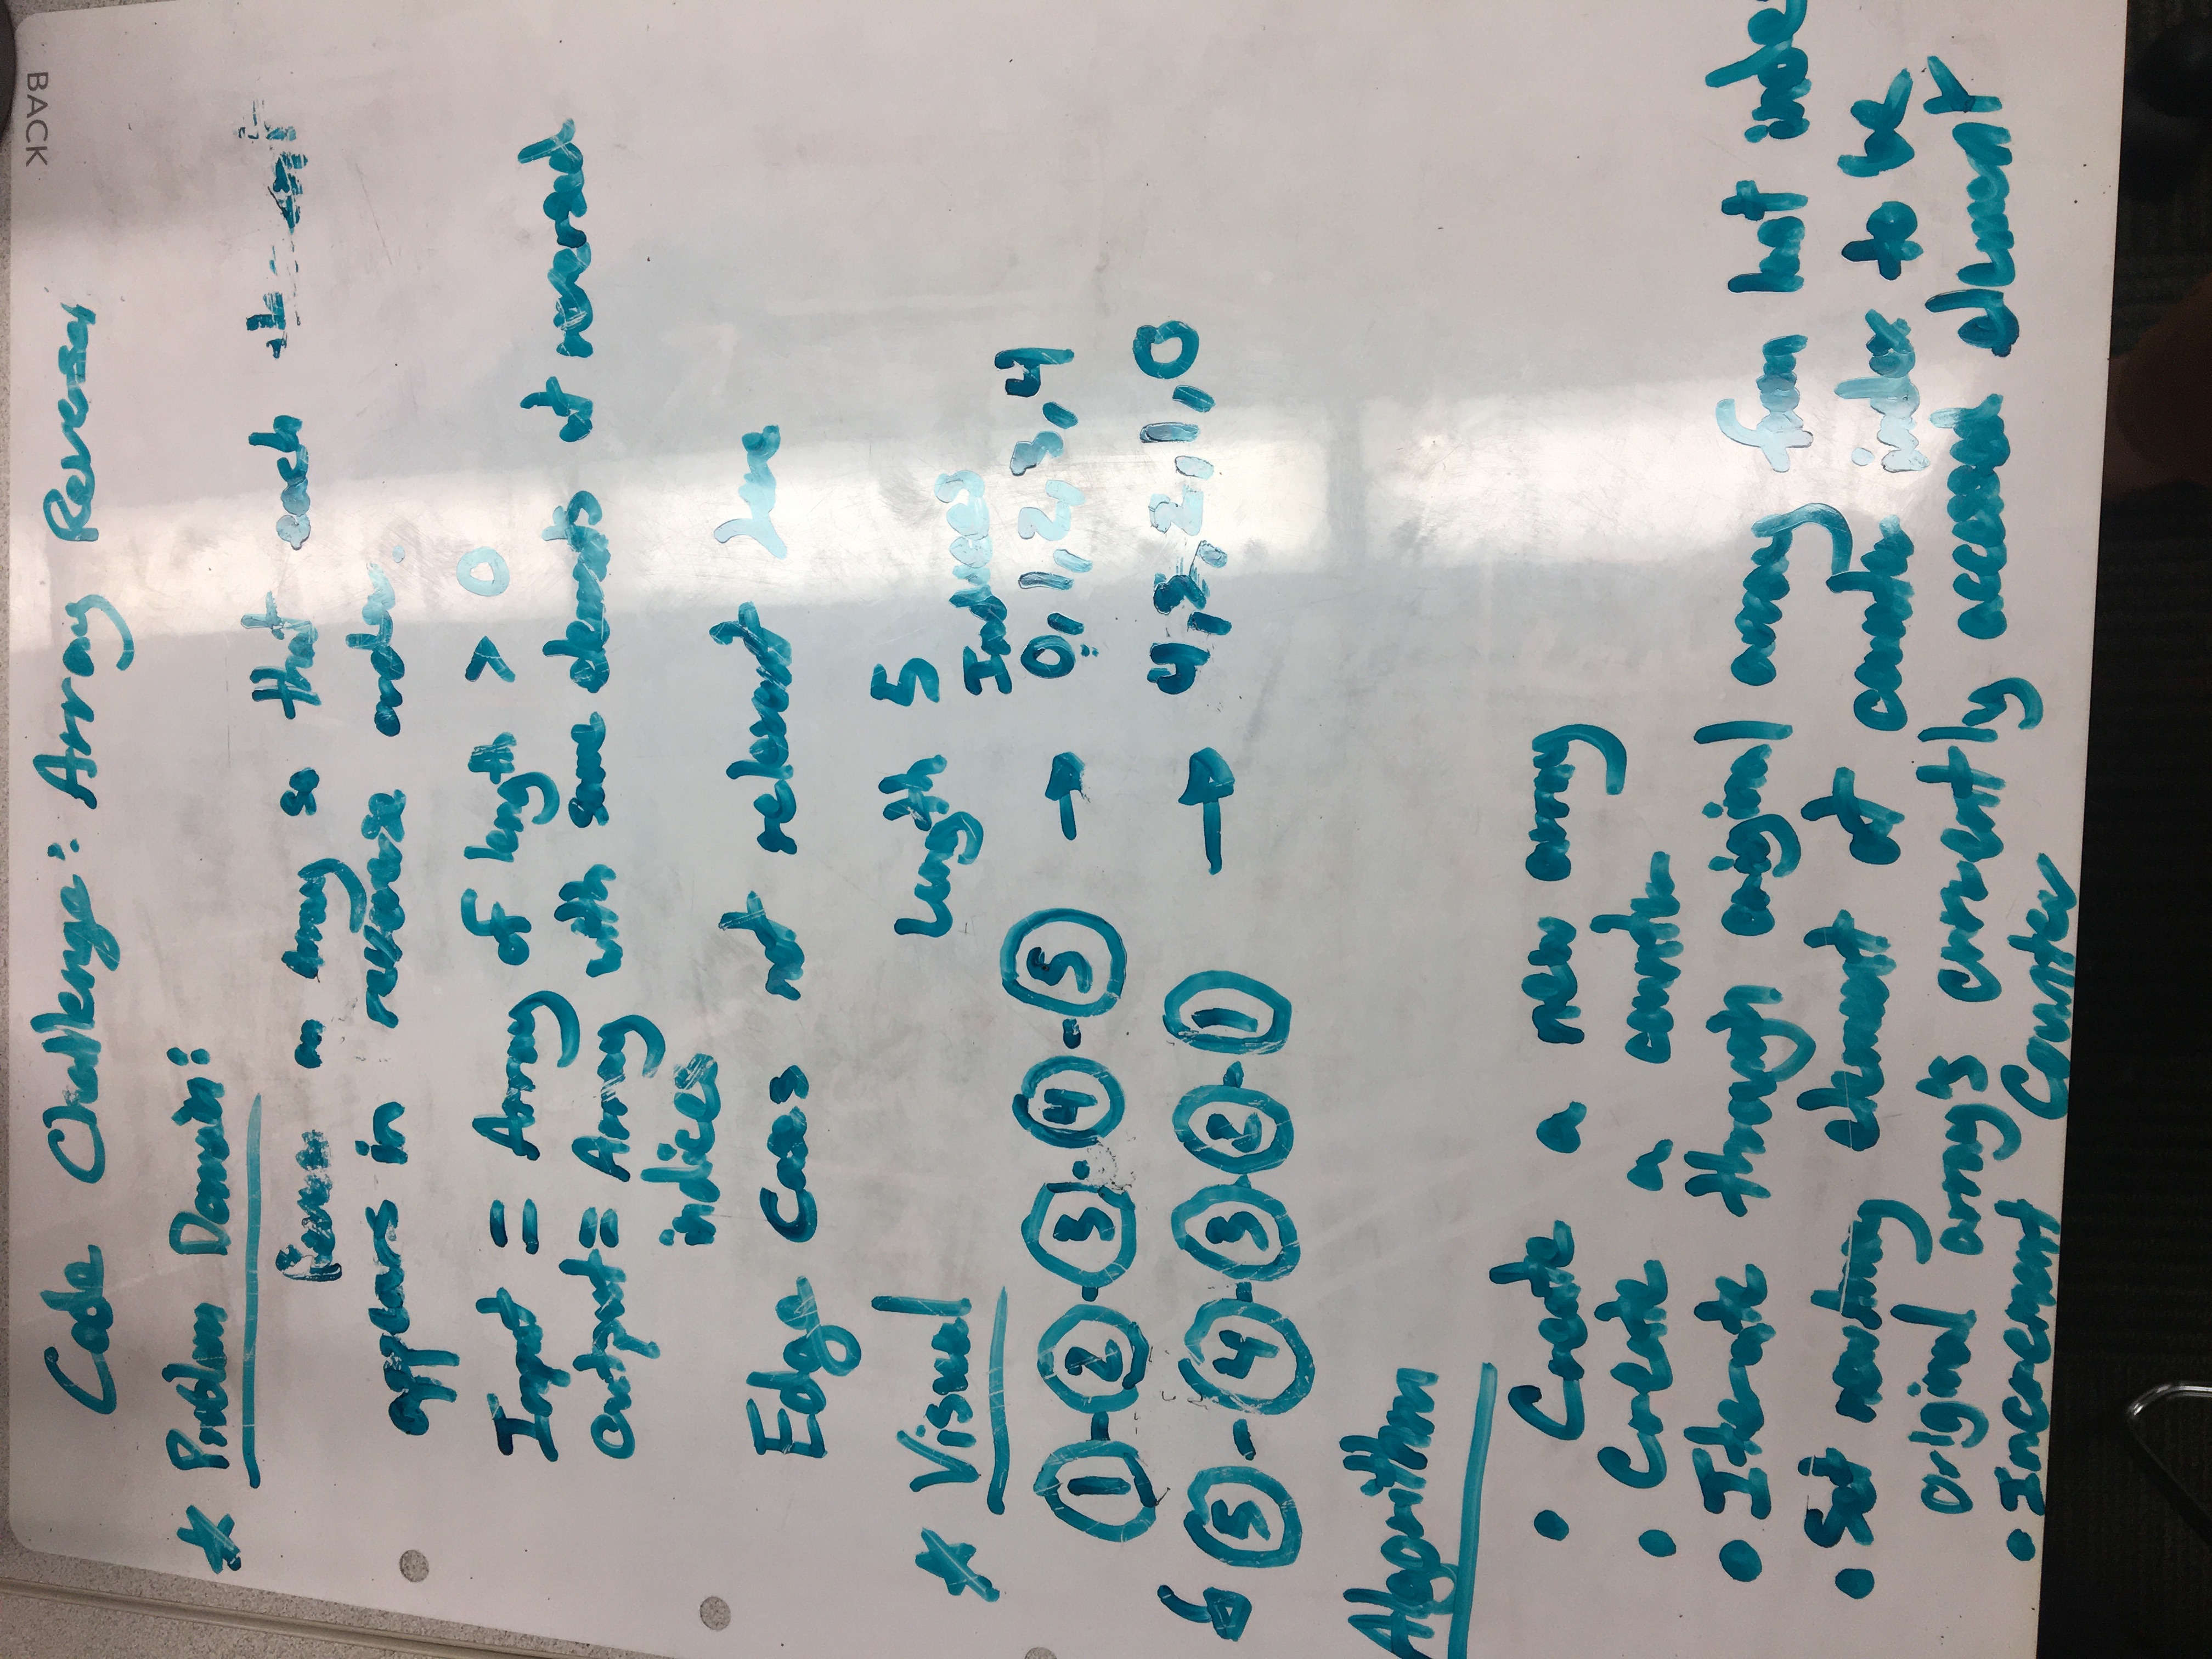 BACK
Code Challenge: Array Reversal
* Problem Domain:
Reverse an array so that each element
appears in reverse order.
Input = Array of length > 0
Output = Array with same elements at reversed
indices
Edge Cases not relevant here
* Visual
Length 5
Indices
1 - 2 - 3 - 4 - 5 → 0, 1, 2, 3, 4
5 - 4 - 3 - 2 - 1 → 4, 3, 2, 1, 0
Algorithm
• Create a new array
• Create a counter
• Iterate through original array from last inde
• Set newArray element at counter index to be
original array's currently accessed element
• Increment Counter